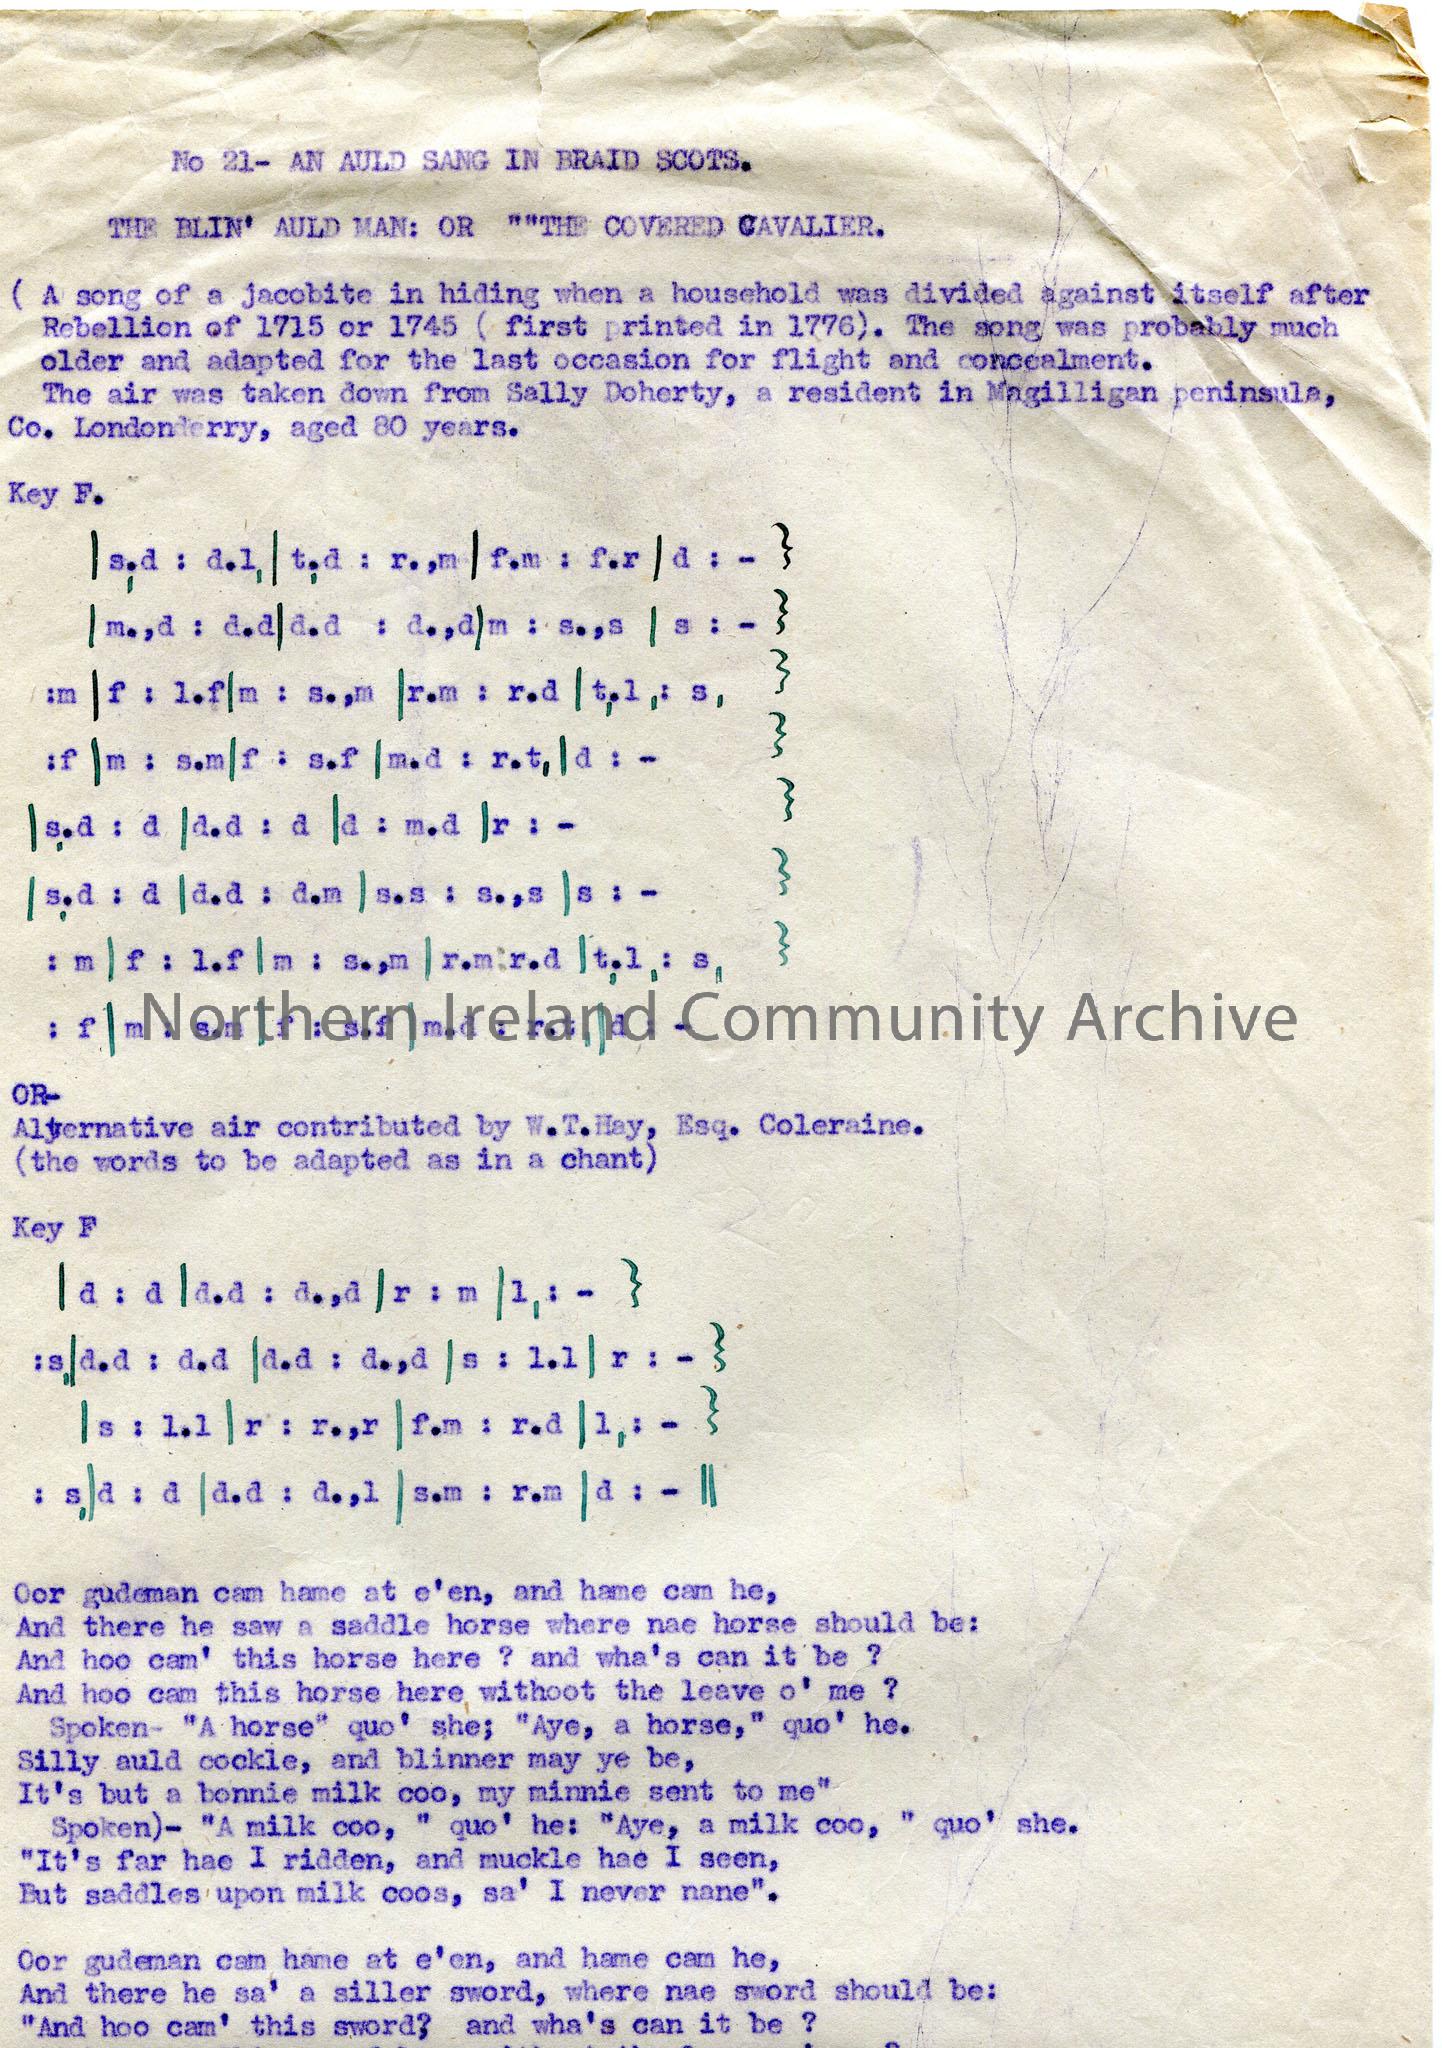 No 21- AN AULD SANG IN BRAID SCOTS.
THE BLIN' AULD MAN: OR ""THE COVERED CAVALIER.
( A song of a jacobite in hiding when a household was divided against itself after
Rebellion of 1715 or 1745 ( first printed in 1776). The song was probably much
older and adapted for the last occasion for flight and concealment.
The air was taken down from Sally Doherty, a resident in Magilligan peninsula,
Co. Londonderry, aged 80 years.
Key F.
|s,.d : d.l,|t,.d : r.,m|f.m : f.r|d : - }
|m.,d : d.d|d.d : d.,d|m : s.,s | s : - }
:m |f : l.f|m : s.,m |r.m : r.d |t,.l, : s, }
:f |m : s.m|f : s.f |m.d : r.t,|d : - }
|s,.d : d |d.d : d |d : m.d |r : - }
|s,.d : d |d.d : d.m |s.s : s.,s |s : - }
: m |f : l.f |m : s.,m |r.m:r.d |t,.l, : s, }
: f |m : s.m |f : s.f |m.d : r.t,|d : -
Northern Ireland Community Archive
OR-
Alternative air contributed by W.T.Hay, Esq. Coleraine.
(the words to be adapted as in a chant)
Key F
|d : d |d.d : d.,d |r : m |l, : - }
:s,|d.d : d.d |d.d : d.,d |s : l.l | r : - }
|s : l.l |r : r.,r |f.m : r.d |l, : - }
: s,|d : d |d.d : d.,l |s.m : r.m |d : - ||
Oor gudeman cam hame at e'en, and hame cam he,
And there he saw a saddle horse where nae horse should be:
And hoo cam' this horse here ? and wha's can it be ?
And hoo cam this horse here withoot the leave o' me ?
Spoken- "A horse" quo' she; "Aye, a horse," quo' he.
Silly auld cockle, and blinner may ye be,
It's but a bonnie milk coo, my minnie sent to me"
Spoken)- "A milk coo, " quo' he: "Aye, a milk coo, " quo' she.
"It's far hae I ridden, and muckle hae I seen,
But saddles upon milk coos, sa' I never nane".
Oor gudeman cam hame at e'en, and hame cam he,
And there he sa' a siller sword, where nae sword should be:
"And hoo cam' this sword? and wha's can it be ?